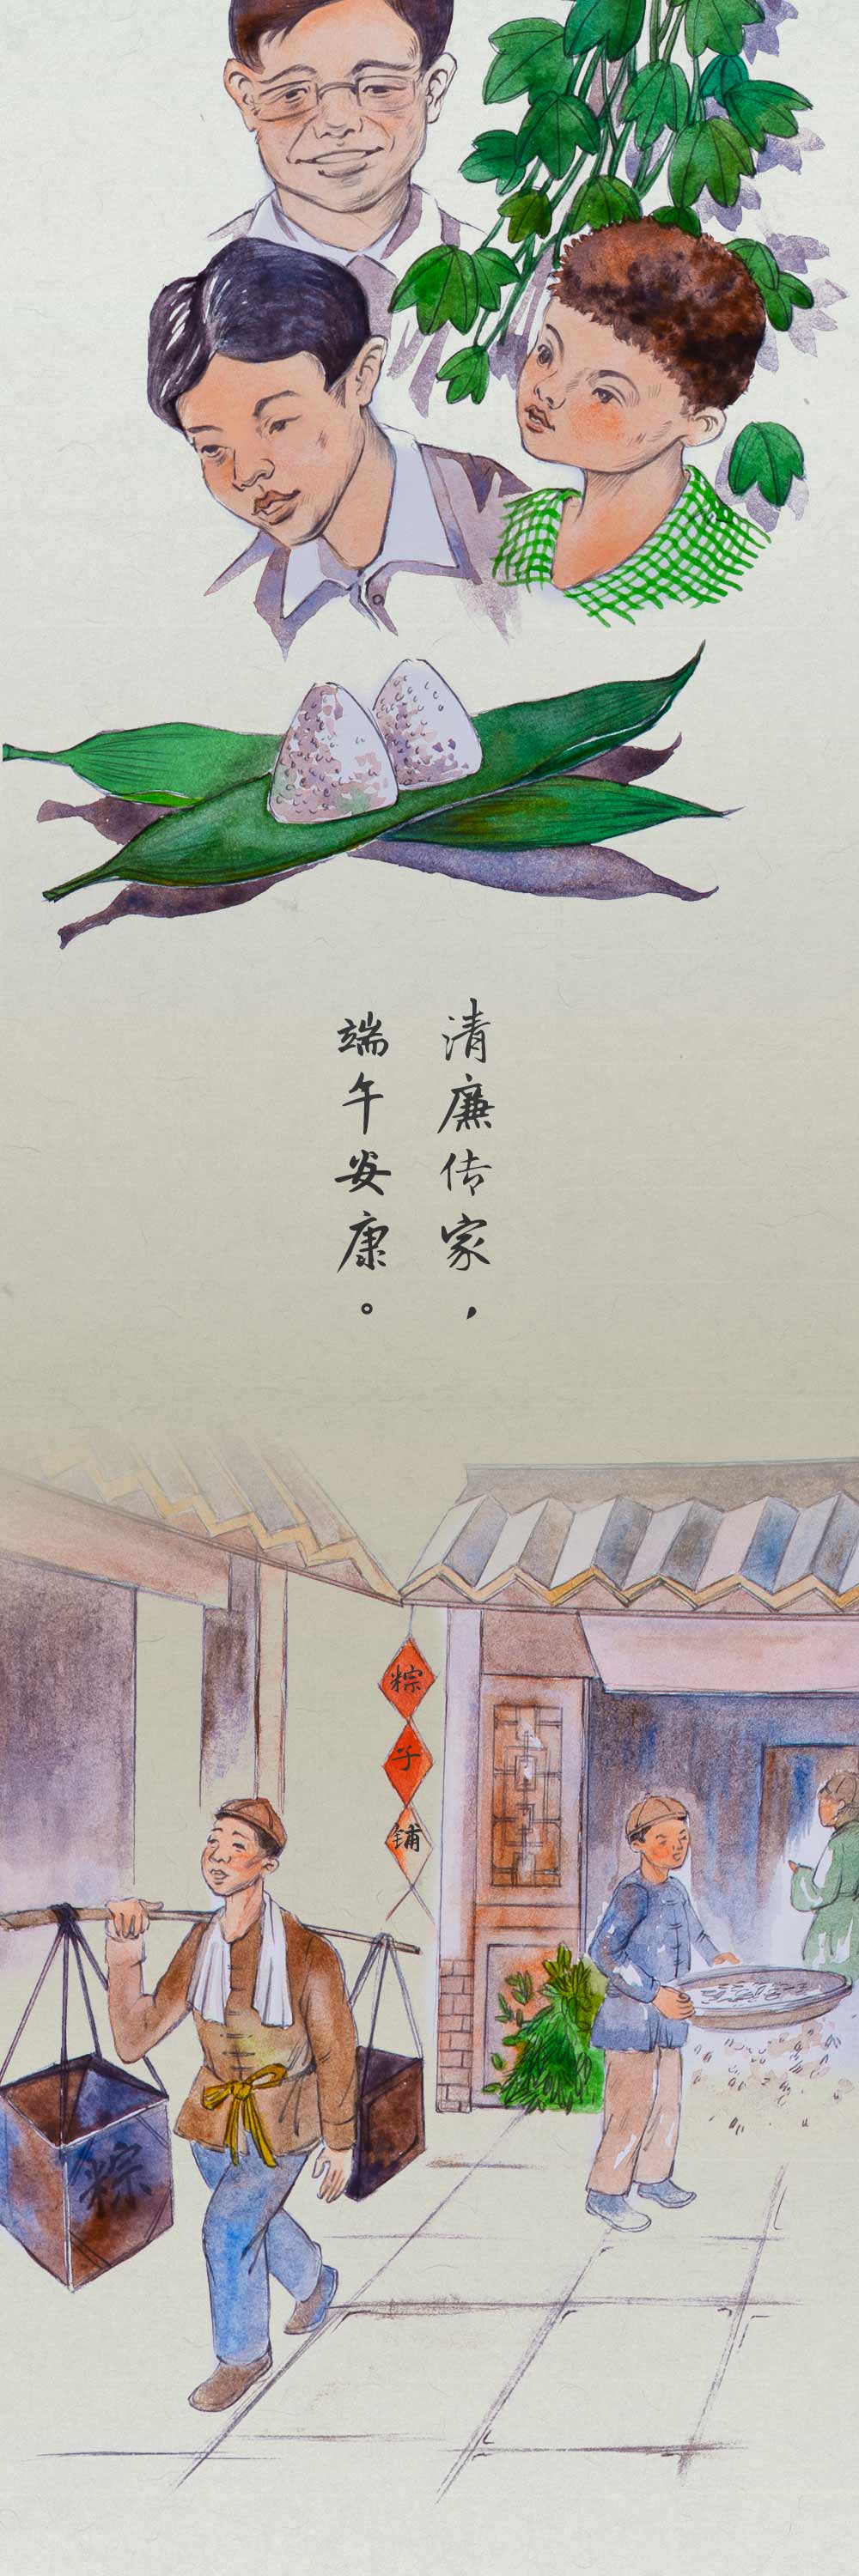 清廉传家，
端午安康。
粽子铺
粽